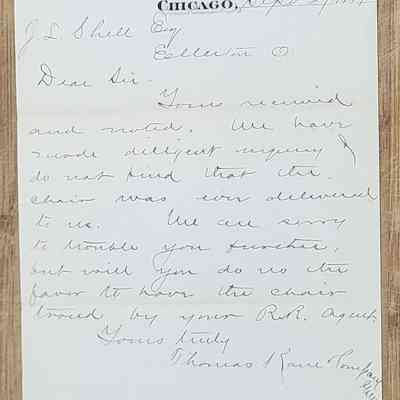 CHICAGO, Sept
J. L. Shell Esq
Ellerton O
Dear Sir.
Yours received
and noted. We have
made dilligent inquiry &
do not find that the
chair was ever delivered
to us. We are sorry
to trouble you further,
but will you do us the
favor to have the chair
traced by your R.R. Agent.
Yours truly
Thomas Kane & Company